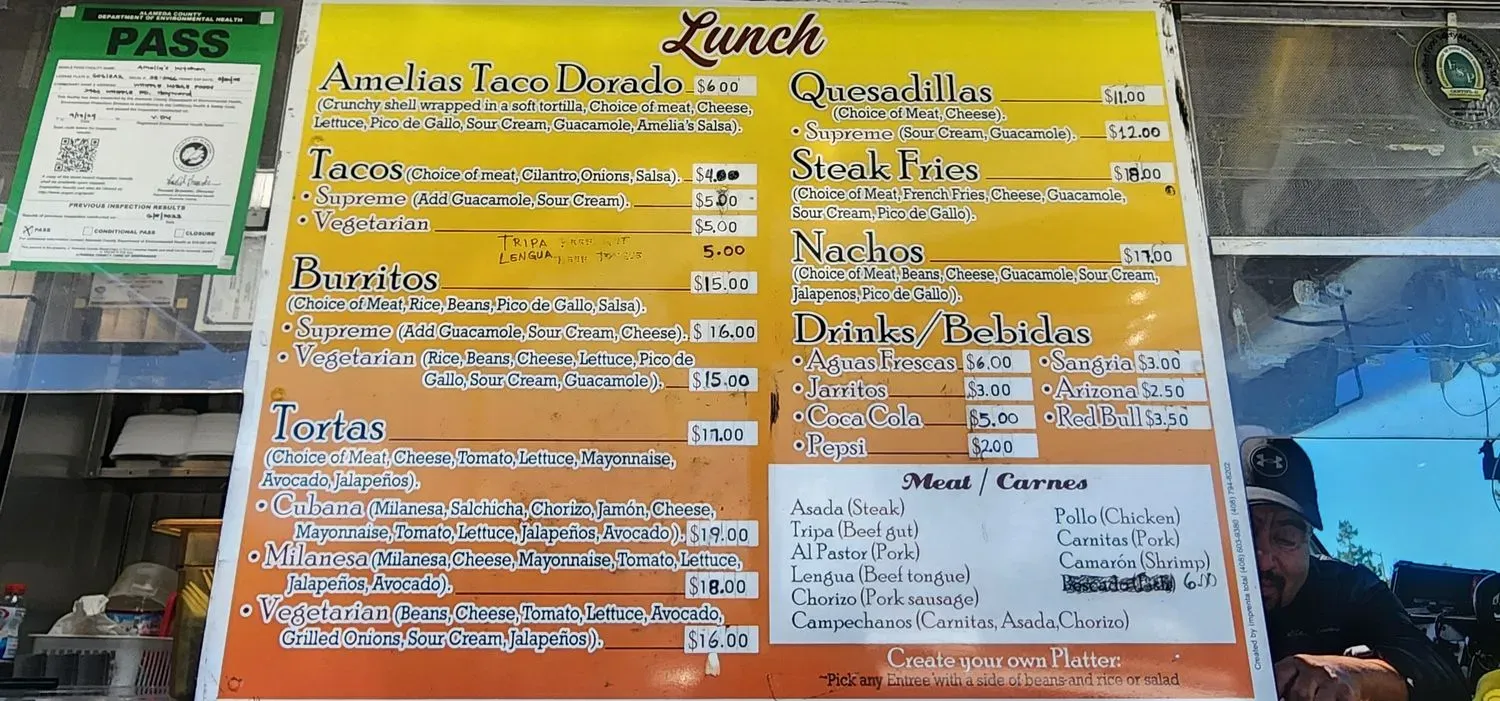 ALAMEDA COUNTY
DEPARTMENT OF ENVIRONMENTAL HEALTH
PASS
Amelia's Kitchen
PREVIOUS INSPECTION RESULTS
PASS CONDITIONAL PASS CLOSURE
Lunch
Amelias Taco Dorado $6.00
(Crunchy shell wrapped in a soft tortilla, Choice of meat, Cheese,
Lettuce, Pico de Gallo, Sour Cream, Guacamole, Amelia's Salsa).
Tacos (Choice of meat, Cilantro, Onions, Salsa). $4.00
• Supreme (Add Guacamole, Sour Cream). $5.00
• Vegetarian $5.00
TRIPA
LENGUA 5.00
Burritos $15.00
(Choice of Meat, Rice, Beans, Pico de Gallo, Salsa).
• Supreme (Add Guacamole, Sour Cream, Cheese). $16.00
• Vegetarian (Rice, Beans, Cheese, Lettuce, Pico de
Gallo, Sour Cream, Guacamole). $15.00
Tortas $17.00
(Choice of Meat, Cheese, Tomato, Lettuce, Mayonnaise,
Avocado, Jalapeños).
• Cubana (Milanesa, Salchicha, Chorizo, Jamón, Cheese,
Mayonnaise, Tomato, Lettuce, Jalapeños, Avocado). $19.00
• Milanesa (Milanesa, Cheese, Mayonnaise, Tomato, Lettuce,
Jalapeños, Avocado). $18.00
• Vegetarian (Beans, Cheese, Tomato, Lettuce, Avocado,
Grilled Onions, Sour Cream, Jalapeños). $16.00
Quesadillas $11.00
(Choice of Meat, Cheese).
• Supreme (Sour Cream, Guacamole). $12.00
Steak Fries $18.00
(Choice of Meat, French Fries, Cheese, Guacamole,
Sour Cream, Pico de Gallo).
Nachos $17.00
(Choice of Meat, Beans, Cheese, Guacamole, Sour Cream,
Jalapenos, Pico de Gallo).
Drinks/Bebidas
• Aguas Frescas $6.00 • Sangria $3.00
• Jarritos $3.00 • Arizona $2.50
• Coca Cola $5.00 • Red Bull $3.50
• Pepsi $2.00
Meat / Carnes
Asada (Steak)
Tripa (Beef gut)
Al Pastor (Pork)
Lengua (Beef tongue)
Chorizo (Pork sausage)
Campechanos (Carnitas, Asada, Chorizo)
Pollo (Chicken)
Carnitas (Pork)
Camarón (Shrimp)
6.00
Create your own Platter:
~Pick any Entree with a side of beans and rice or salad
Created by Imprenta total (408) 603-9380 (408) 794-6202